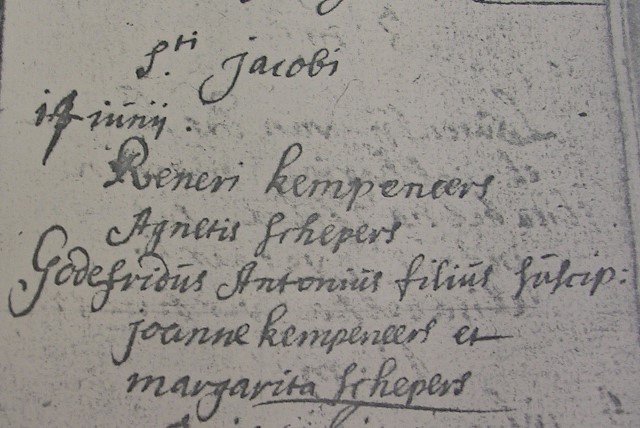 S.ti Jacobi
iunii.
Reneri kempeneers
Agnetis Schepers
Godefridus Antonius filius suscip:
joanne kempeneers et
margarita Schepers